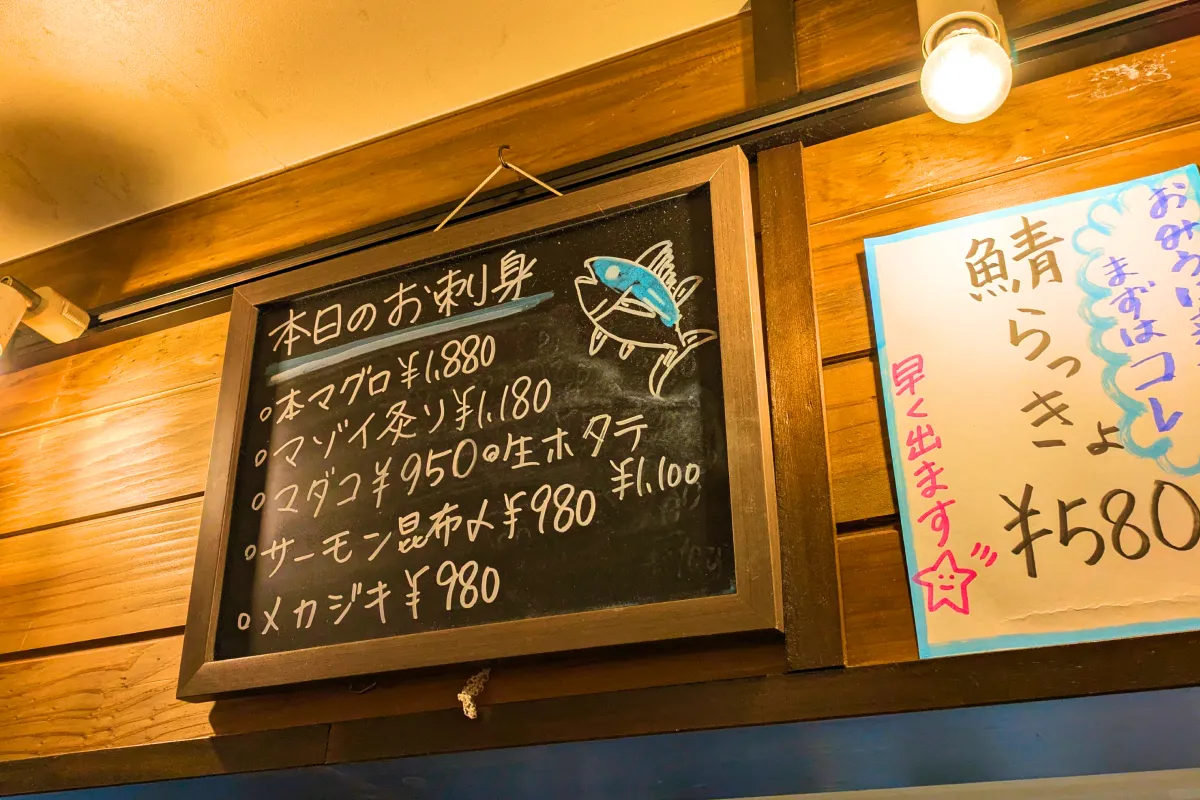 本日のお刺身
○本マグロ ¥1,880
○マゾイ炙り ¥1,180
○マダコ ¥950 ◎生ホタテ
¥1,100
○サーモン昆布〆 ¥980
○メカジキ ¥980
まずはコレ
鯖らっきょ
¥580
早く出ます